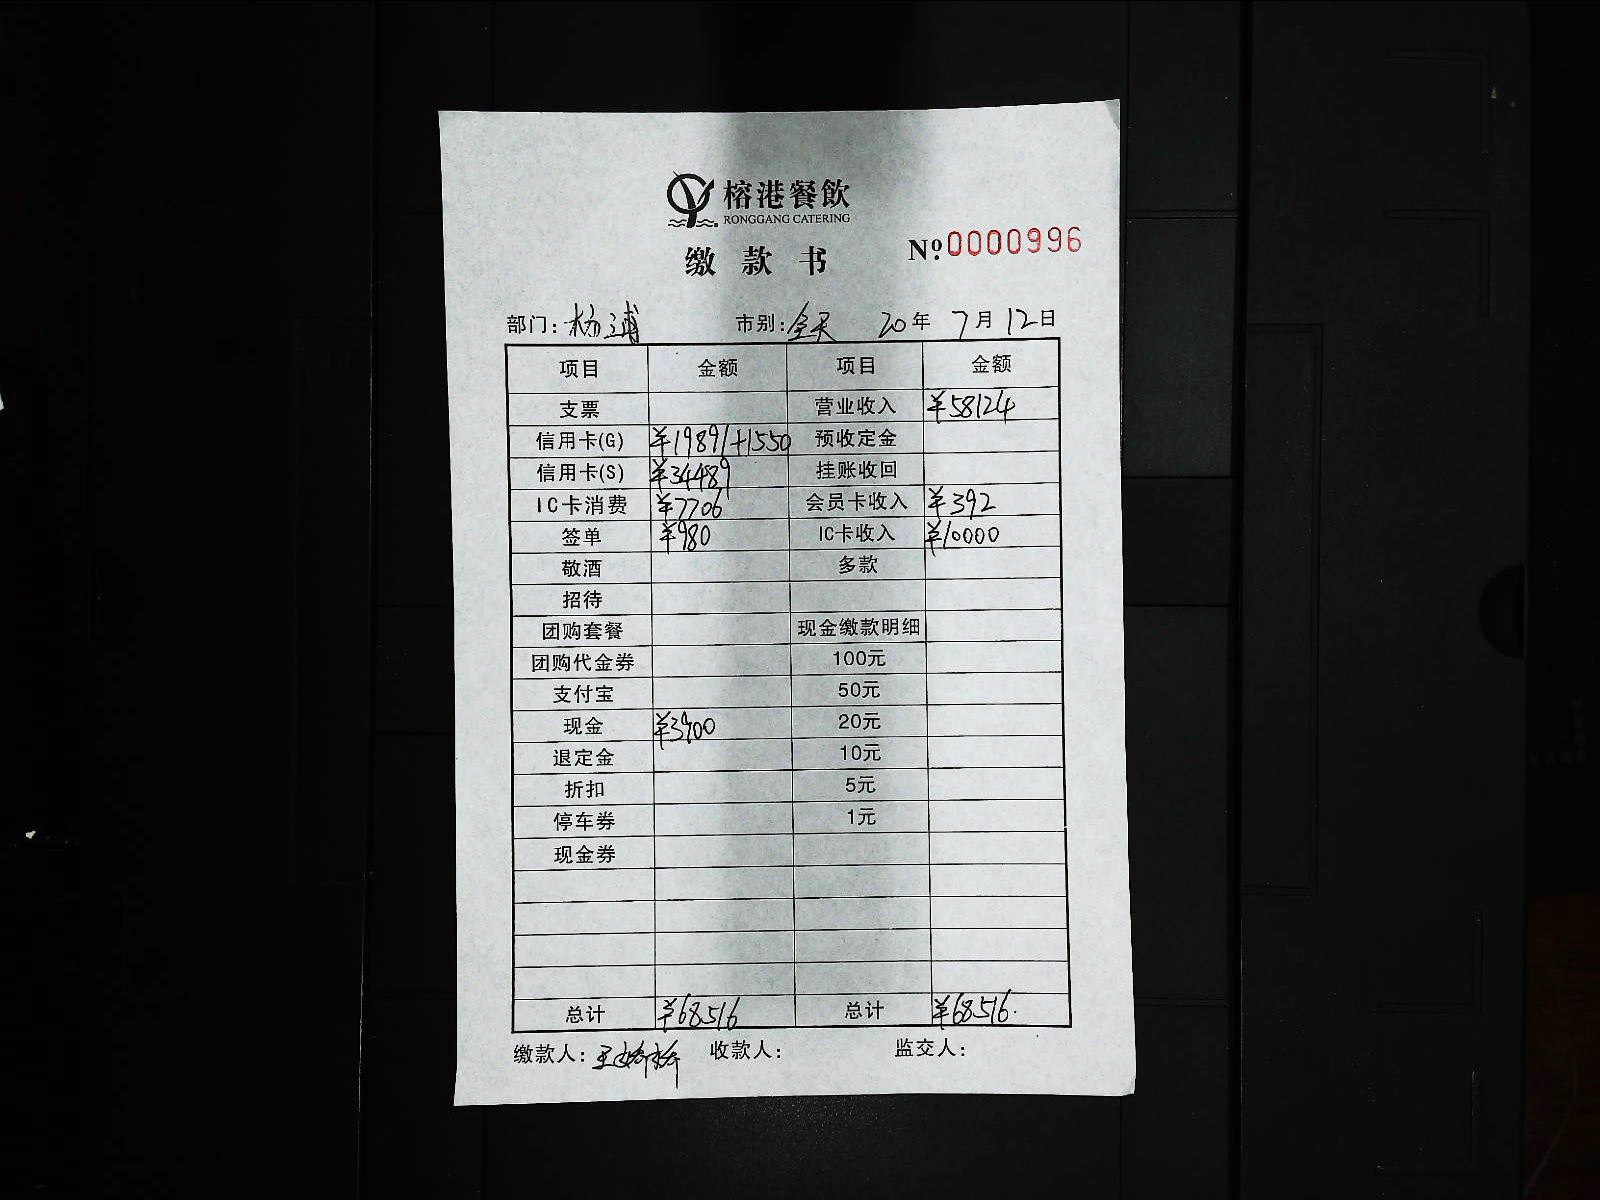 榕港餐飲
RONGGANG CATERING
缴款书 Nº:0000996
部门:杨浦 市别:全天 20年7月12日
项目 金额 项目 金额
支票 营业收入 ¥58124
信用卡(G) ¥19891+1550 预收定金
信用卡(S) ¥34489 挂账收回
IC卡消费 ¥7706 会员卡收入 ¥392
签单 ¥980 IC卡收入 ¥10000
敬酒 多款
招待
团购套餐 现金缴款明细
团购代金券 100元
支付宝 50元
现金 ¥3900 20元
退定金 10元
折扣 5元
停车券 1元
现金券
总计 ¥68516 总计 ¥68516.
缴款人:王 收款人: 监交人: